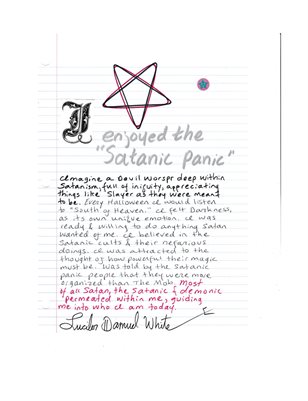 I enjoyed the
"Satanic Panic"
Imagine a Devil Worspr deep within
Satanism, full of iniquity, appreciating
things like 'Slayer' as they were meant
to be. Every Halloween I would listen
to "South of Heaven." I felt Darkness,
as its own unique emotion. I was
ready & willing to do anything Satan
wanted of me. I believed in the
Satanic cults & their nefarious
doings. I was attracted to the
thought of how powerful their magic
must be. Was told by the Satanic
panic people that they were more
organized than The Mob. Most
of all Satan, the Satanic & demonic
permeated within me, guiding
me into who I am today.
Lucifer Damuel White